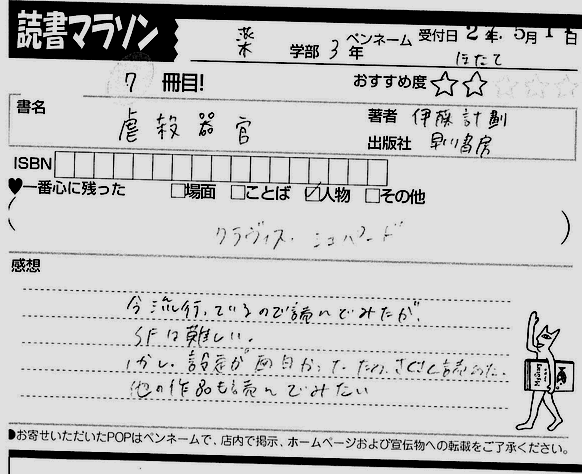 読書マラソン
薬 学部 3年 ペンネーム ほたて 受付日 2年 5月1日
7 冊目!
おすすめ度 ☆☆
書名 虐殺器官
著者 伊藤計劃
出版社 早川書房
ISBN
♥一番心に残った □場面 □ことば ☑人物 □その他
(クラヴィス・シェパード)
感想
今流行っているので読んでみたが、
SFは難しい。
しかし、設定が面白かったため、さくさく読めた。
他の作品も読んでみたい
Mystery
●お寄せいただいたPOPはペンネームで、店内で掲示、ホームページおよび宣伝物への転載をご了承ください。